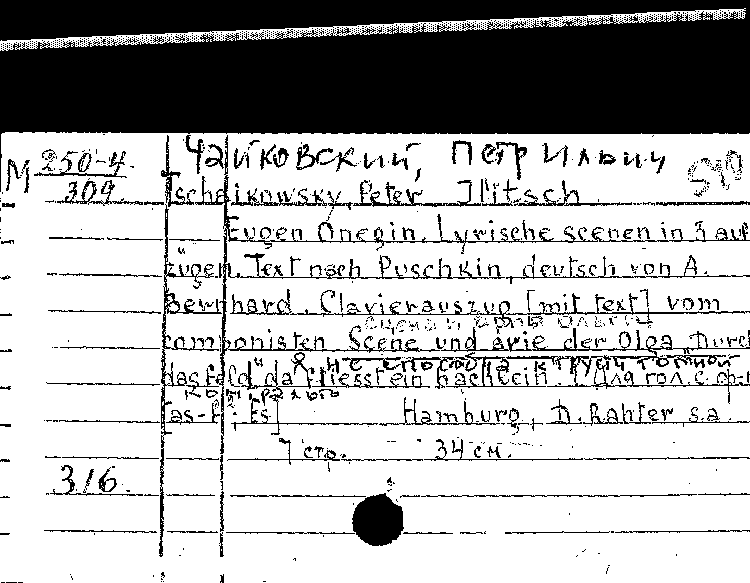 Чайковский, Петр Ильич
М 250-4 309
Tschaikowsky, Peter Ilitsch
Eugen Onegin. Lyrische scenen in 3 auf-
zügen. Text nach Puschkin, deutsch von A.
Bernhard. Clavierauszug [mit text] vom
сцена и ария Ольги
componisten. Scene und arie der Olga „Durch
"Я не способна к грусти томной
das feld" da fliesst ein bächlein". [Для гол. с ф.-п.
контральто
as- ; Es] Hamburg, D. Rahter, s.a.
7 стр. 34 см.
316.